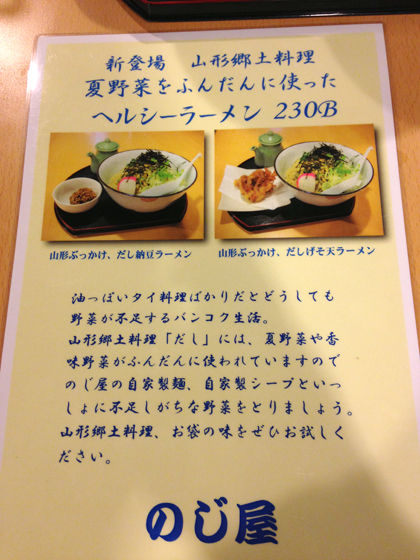 新登場　山形郷土料理
夏野菜をふんだんに使った
ヘルシーラーメン 230B
山形ぶっかけ、だし納豆ラーメン
山形ぶっかけ、だしげそ天ラーメン
油っぽいタイ料理ばかりだとどうしても
野菜が不足するバンコク生活。
山形郷土料理「だし」には、夏野菜や香
味野菜がふんだんに使われていますので
のじ屋の自家製麺、自家製シープといっ
しょに不足しがちな野菜をとりましょう。
山形郷土料理、お袋の味をぜひお試しく
ださい。
のじ屋